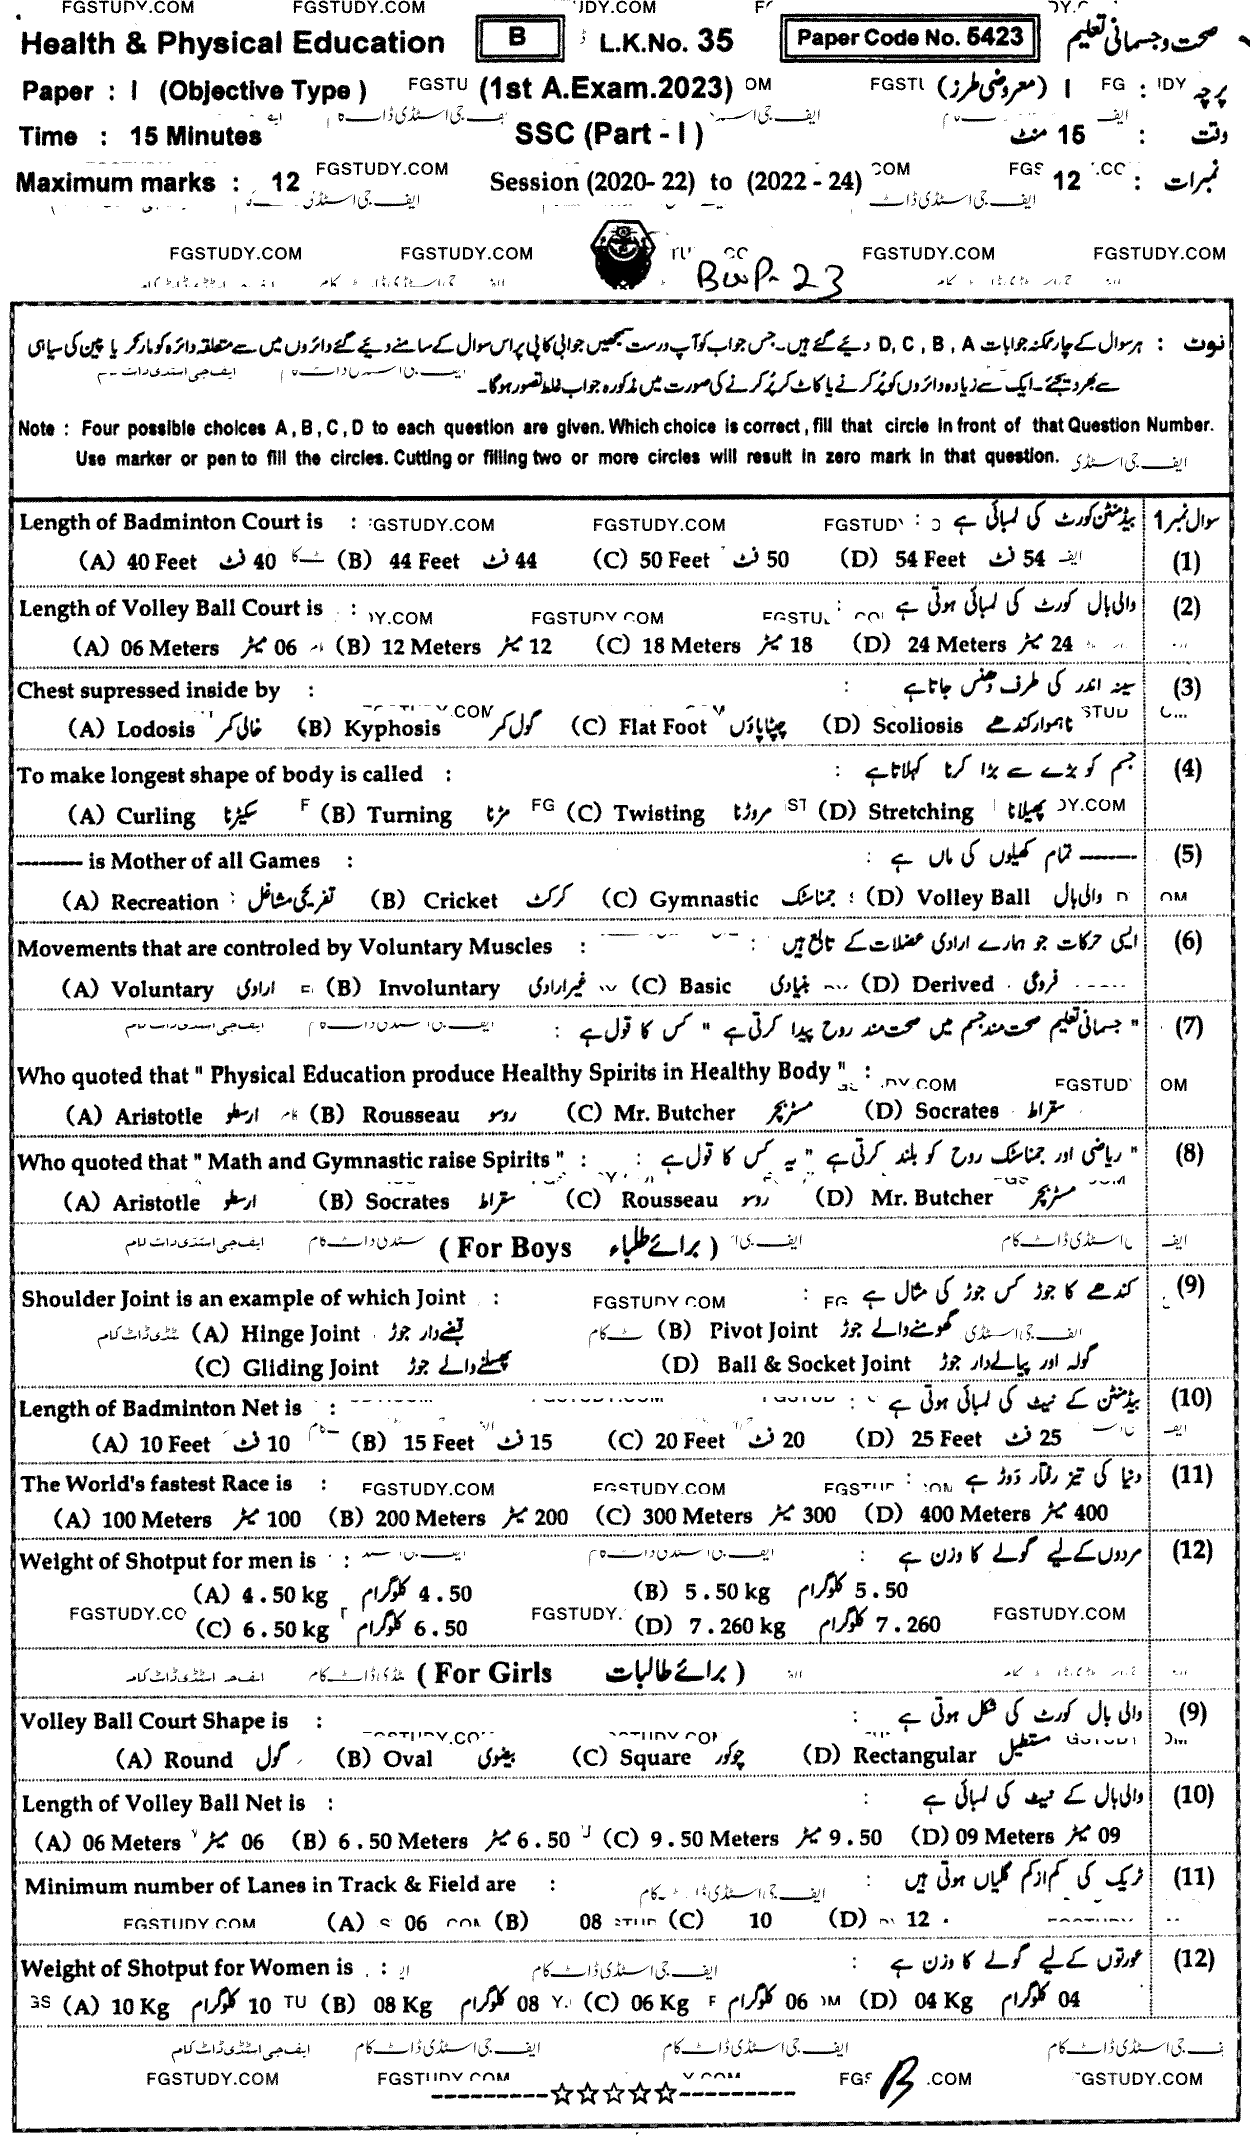 FGSTUDY.COM FGSTUDY.COM JDY.COM
Health & Physical Education B L.K.No. 35 Paper Code No. 5423 صحت و جسمانی تعلیم
Paper : I (Objective Type) FGSTU (1st A.Exam.2023) OM FGSTU I (معروضی طرز) FG : پرچہ
Time : 15 Minutes SSC (Part - I) 15 منٹ : وقت
Maximum marks : 12 FGSTUDY.COM Session (2020- 22) to (2022 - 24) COM 12 : نمبرات
FGSTUDY.COM FGSTUDY.COM FGSTUDY.COM FGSTUDY.COM
BWP-23
نوٹ : ہر سوال کے چار ممکنہ جوابات D, C, B, A دیے گئے ہیں۔ جس جواب کو آپ درست سمجھیں جوابی کاپی پر اس سوال کے سامنے دیے گئے دائروں میں سے متعلقہ دائرہ کو مارکر یا پین کی سیاہی
سے بھر دیجئے۔ ایک سے زیادہ دائروں کو پُر کرنے یا کاٹ کر پُر کرنے کی صورت میں مذکورہ جواب غلط تصور ہوگا۔
Note : Four possible choices A, B, C, D to each question are given. Which choice is correct, fill that circle in front of that Question Number.
Use marker or pen to fill the circles. Cutting or filling two or more circles will result in zero mark in that question. ایف جی اسٹڈی
Length of Badminton Court is : FGSTUDY.COM FGSTUDY.COM بیڈمنٹن کورٹ کی لمبائی ہے : سوال نمبر 1
(A) 40 Feet 40 فٹ (B) 44 Feet 44 فٹ (C) 50 Feet 50 فٹ (D) 54 Feet 54 فٹ (1)
Length of Volley Ball Court is : والی بال کورٹ کی لمبائی ہوتی ہے : (2)
(A) 06 Meters 06 میٹر (B) 12 Meters 12 میٹر (C) 18 Meters 18 میٹر (D) 24 Meters 24 میٹر
Chest supressed inside by : سینہ اندر کی طرف دھنس جاتا ہے : (3)
(A) Lodosis خالی کمر (B) Kyphosis گول کمر (C) Flat Foot چپٹا پاؤں (D) Scoliosis ناہموار کندھے
To make longest shape of body is called : جسم کو بڑے سے بڑا کرنا کہلاتا ہے : (4)
(A) Curling سکیڑنا (B) Turning مڑنا (C) Twisting مروڑنا (D) Stretching پھیلانا
-------- is Mother of all Games : -------- تمام کھیلوں کی ماں ہے : (5)
(A) Recreation تفریحی مشاغل (B) Cricket کرکٹ (C) Gymnastic جمناسٹک (D) Volley Ball والی بال
Movements that are controled by Voluntary Muscles : ایسی حرکات جو ہمارے ارادی عضلات کے تابع ہیں : (6)
(A) Voluntary ارادی (B) Involuntary غیر ارادی (C) Basic بنیادی (D) Derived فروعی
" جسمانی تعلیم صحت مند جسم میں صحت مند روح پیدا کرتی ہے " کس کا قول ہے : (7)
Who quoted that " Physical Education produce Healthy Spirits in Healthy Body " :
(A) Aristotle ارسطو (B) Rousseau روسو (C) Mr. Butcher مسٹر بچر (D) Socrates سقراط
Who quoted that " Math and Gymnastic raise Spirits " : " ریاضی اور جمناسٹک روح کو بلند کرتی ہے " یہ کس کا قول ہے : (8)
(A) Aristotle ارسطو (B) Socrates سقراط (C) Rousseau روسو (D) Mr. Butcher مسٹر بچر
(For Boys برائے طلباء)
Shoulder Joint is an example of which Joint : FGSTUDY.COM کندھے کا جوڑ کس جوڑ کی مثال ہے : (9)
(A) Hinge Joint قبضے دار جوڑ (B) Pivot Joint گھومنے والے جوڑ
(C) Gliding Joint پھسلنے والے جوڑ (D) Ball & Socket Joint گولہ اور پیالے دار جوڑ
Length of Badminton Net is : بیڈمنٹن کے نیٹ کی لمبائی ہوتی ہے : (10)
(A) 10 Feet 10 فٹ (B) 15 Feet 15 فٹ (C) 20 Feet 20 فٹ (D) 25 Feet 25 فٹ
The World's fastest Race is : FGSTUDY.COM FGSTUDY.COM دنیا کی تیز رفتار دوڑ ہے : (11)
(A) 100 Meters 100 میٹر (B) 200 Meters 200 میٹر (C) 300 Meters 300 میٹر (D) 400 Meters 400 میٹر
Weight of Shotput for men is : مردوں کے لیے گولے کا وزن ہے : (12)
(A) 4.50 kg 4.50 کلوگرام (B) 5.50 kg 5.50 کلوگرام
(C) 6.50 kg 6.50 کلوگرام (D) 7.260 kg 7.260 کلوگرام FGSTUDY.COM
(For Girls برائے طالبات)
Volley Ball Court Shape is : والی بال کورٹ کی شکل ہوتی ہے : (9)
(A) Round گول (B) Oval بیضوی (C) Square چوکور (D) Rectangular مستطیل
Length of Volley Ball Net is : والی بال کے نیٹ کی لمبائی ہے : (10)
(A) 06 Meters 06 میٹر (B) 6.50 Meters 6.50 میٹر (C) 9.50 Meters 9.50 میٹر (D) 09 Meters 09 میٹر
Minimum number of Lanes in Track & Field are : ٹریک کی کم از کم گلیاں ہوتی ہیں : (11)
FGSTUDY.COM (A) 06 (B) 08 (C) 10 (D) 12
Weight of Shotput for Women is : عورتوں کے لیے گولے کا وزن ہے : (12)
(A) 10 Kg 10 کلوگرام (B) 08 Kg 08 کلوگرام (C) 06 Kg 06 کلوگرام (D) 04 Kg 04 کلوگرام
ایف جی اسٹڈی ڈاٹ کام ایف جی اسٹڈی ڈاٹ کام ایف جی اسٹڈی ڈاٹ کام
FGSTUDY.COM FGSTUDY.COM B .COM FGSTUDY.COM
---------☆☆☆☆☆---------